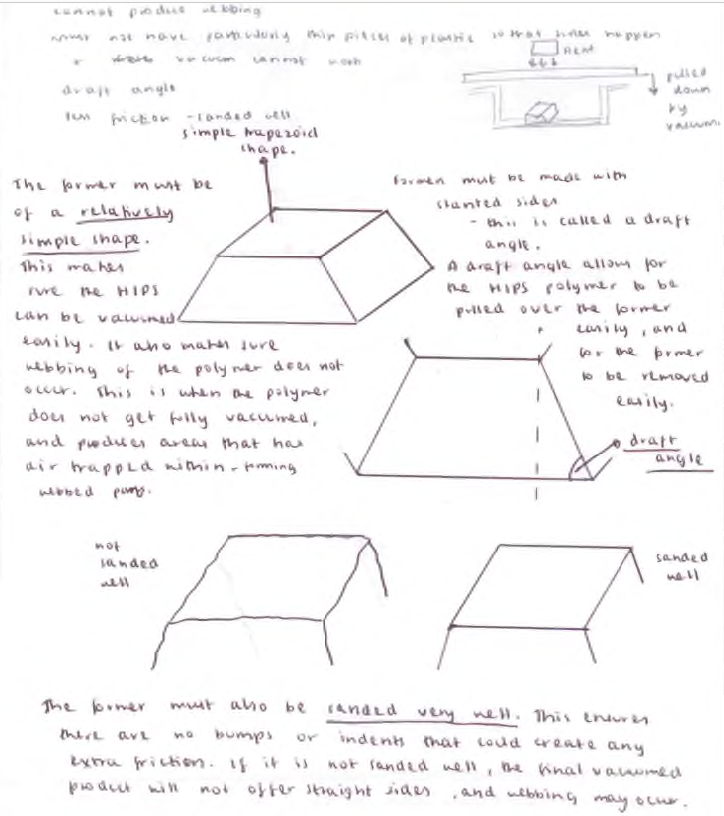 cannot produce webbing
must not have particularly thin pieces of plastic so that holes happen
+ vacuum cannot work
draft angle
less friction - sanded well
HEAT
pulled
down
by
vacuum.
simple trapezoid
shape.
The former must be
of a relatively
simple shape.
This makes
sure the HIPS
can be vacuumed
easily. It also makes sure
webbing of the polymer does not
occur. This is when the polymer
does not get fully vacuumed,
and produces areas that has
air trapped within - forming
webbed
Former must be made with
slanted sides
- this is called a draft
angle.
A draft angle allows for
the HIPS polymer to be
pulled over the former
easily, and
for the former
to be removed
easily.
draft
angle
not
sanded
well
sanded
well
The former must also be sanded very well. This ensures
there are no bumps or indents that could create any
extra friction. If it is not sanded well, the final vacuumed
product will not offer straight sides, and webbing may occur.